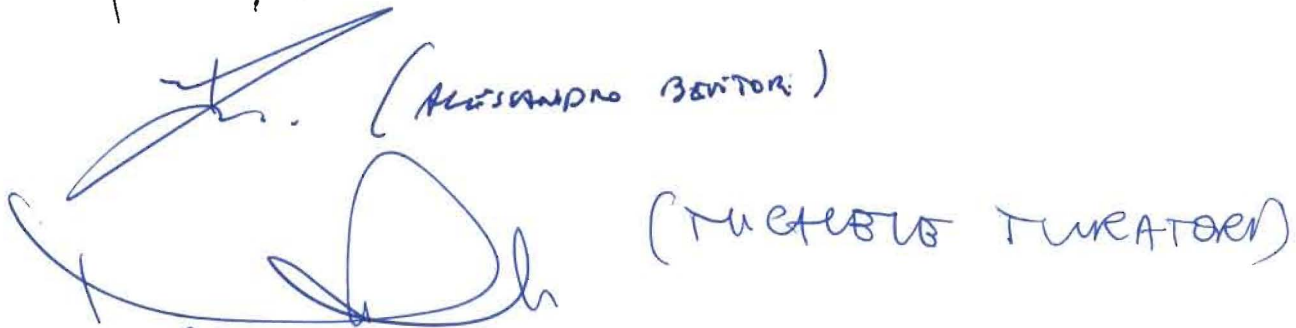 (ALESSANDRO BEVITORI)
(MICHELE MURATORI)